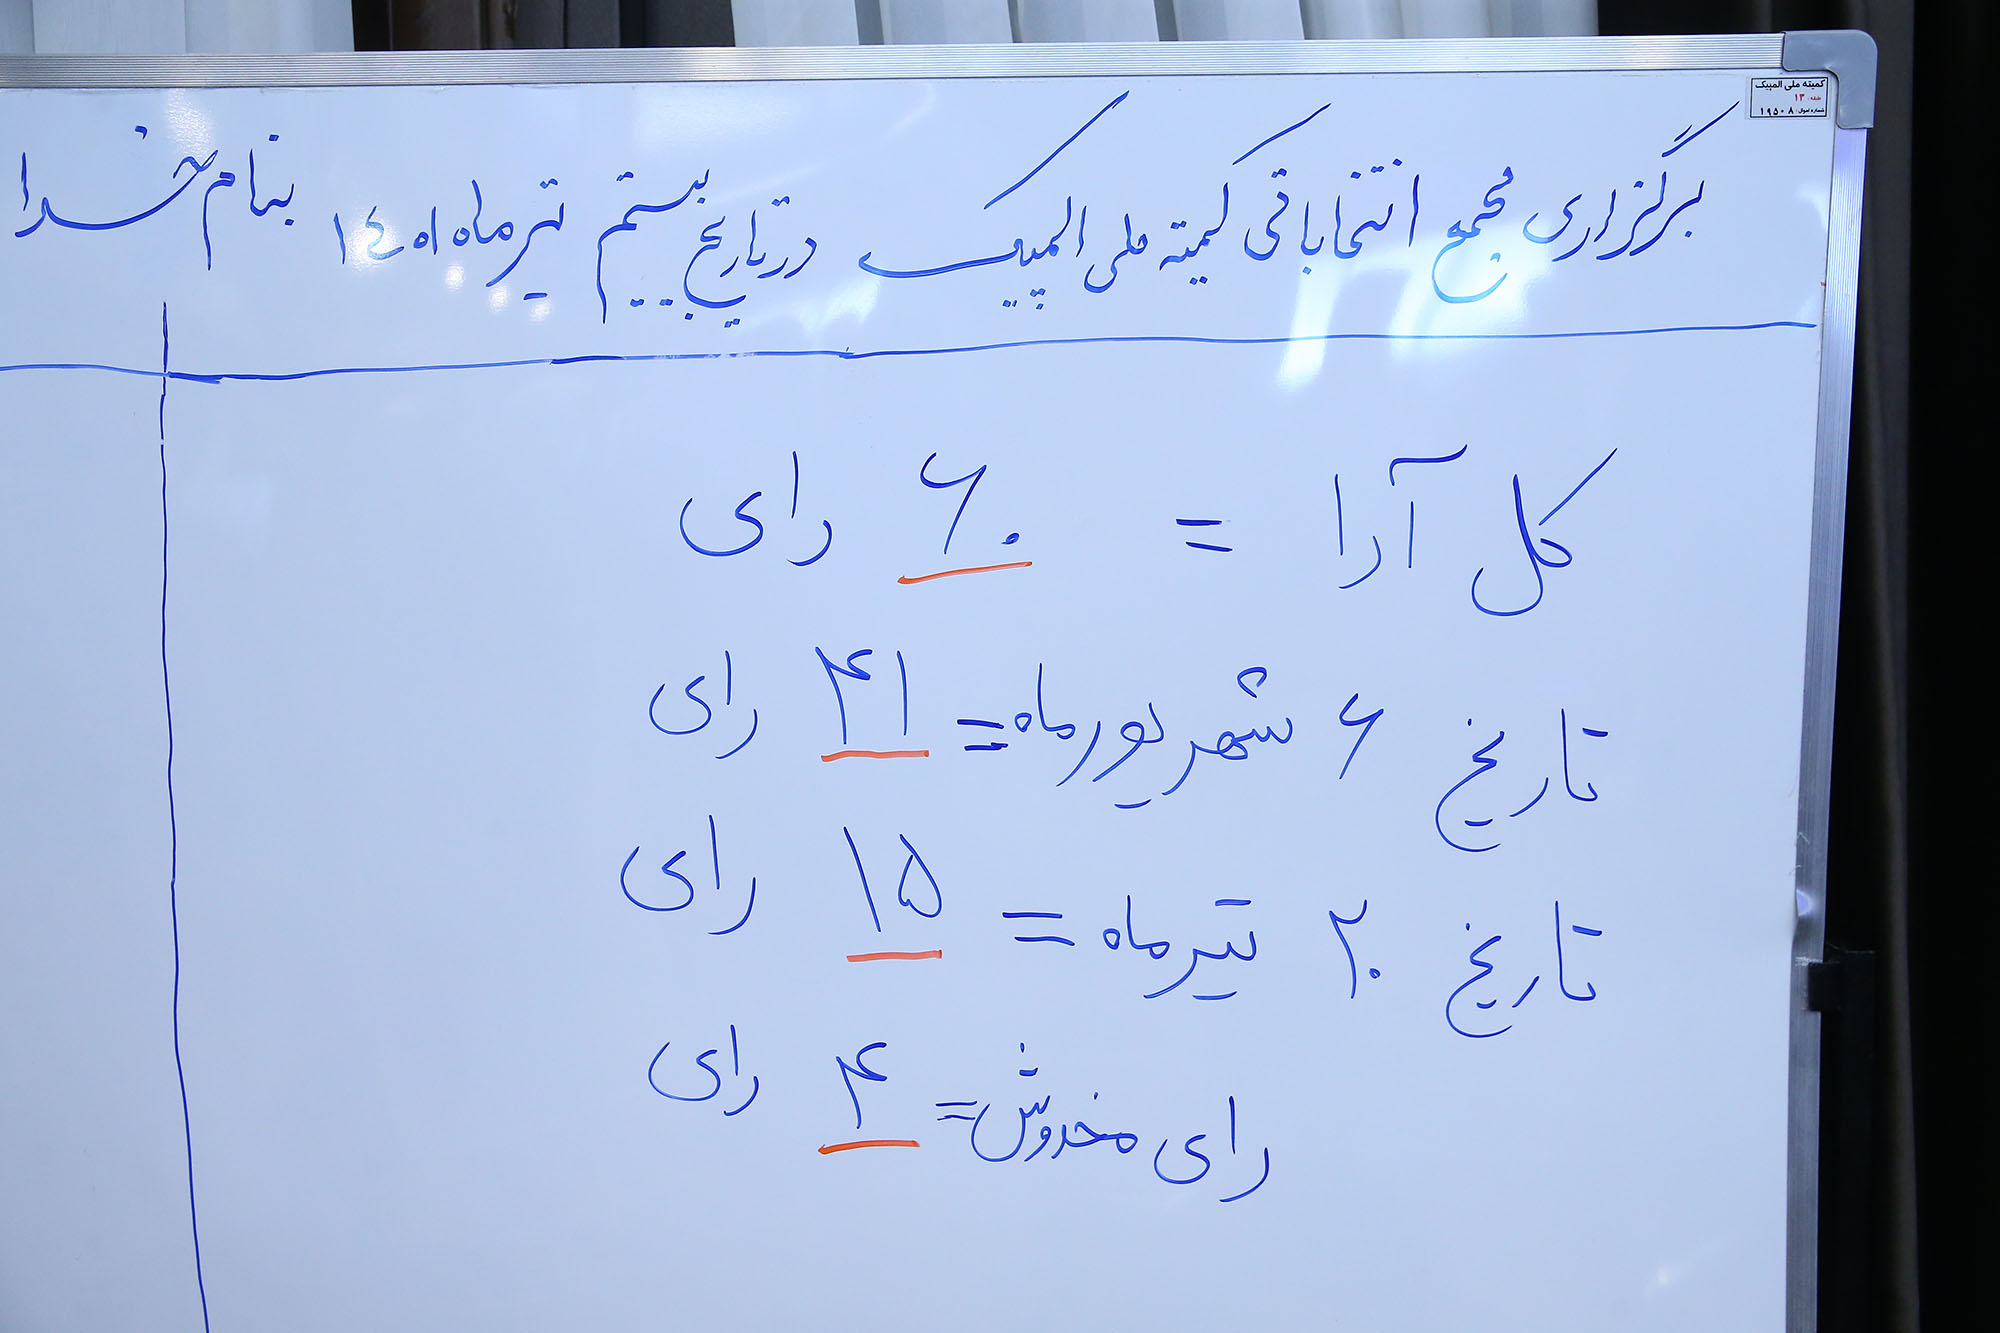 کمیته ملی المپیک
طبقه: ۱۳
شماره اموال: ۱۹۵۰۸
برگزاری مجمع انتخاباتی کمیته ملی المپیک در تاریخ بیستم تیرماه ۱٤۰۱ بنام خدا
کل آرا = ۶۰ رای
تاریخ ۶ شهریورماه = ۴۱ رای
تاریخ ۲۰ تیرماه = ۱۵ رای
رای مخدوش = ۴ رای